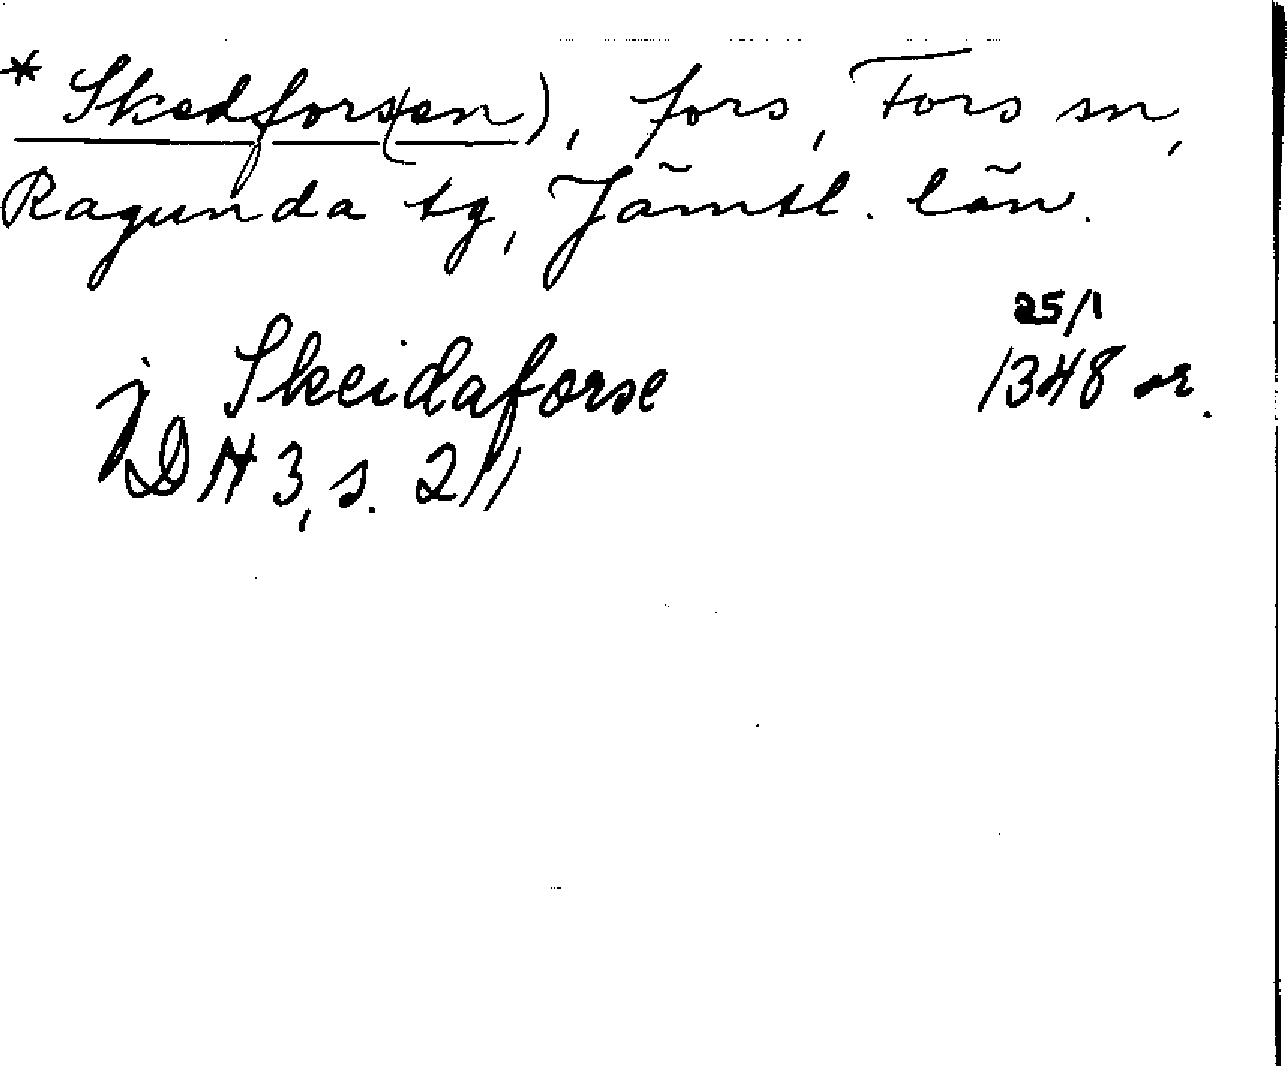 * Skedfors(en), fors, Fors sn,
Ragunda tg, Jämtl. län.
25/1
j Skeidaforse 1348 or.
DN 3, s. 211